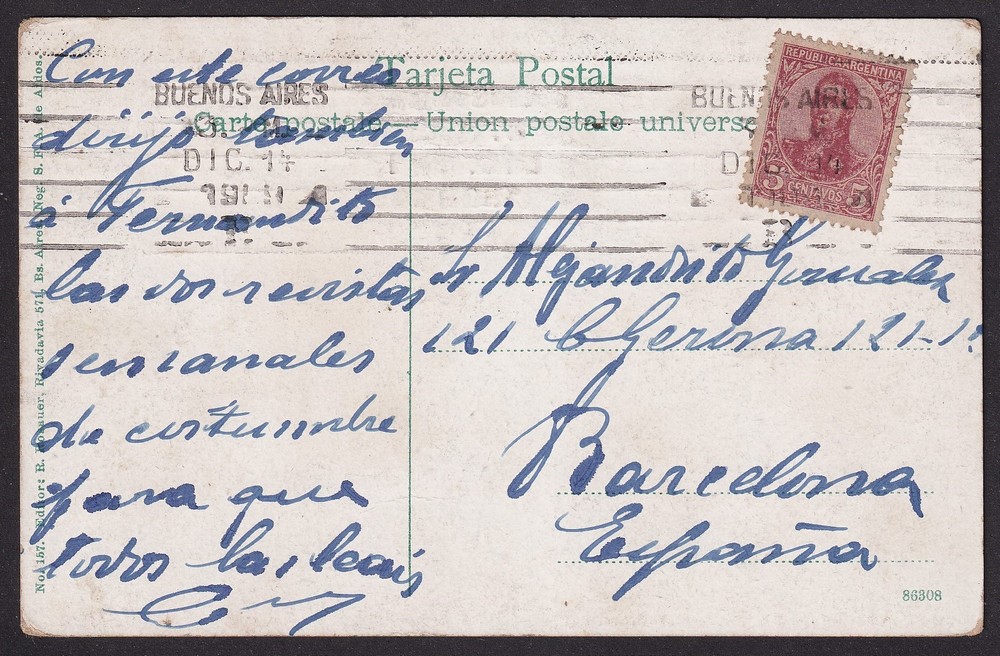 Tarjeta Postal
Carte postale — Union postale universe
REPUBLICA ARGENTINA
5 CENTAVOS 5
BUENOS AIRES
DIC. 14
BUENOS AIRES
DIC. 14
Con este correo
dirijo tambien
á Fernandito
las dos revistas
semanales
de costumbre
para que
todos las leais
Sr Alejandrito Gonzalez
121 C Gerona 121-1º
Barcelona
España
No. 157. Editor: R. Rosauer, Rivadavia 571, Bs. Aires. Neg. S. F. A. de Afdos.
86308